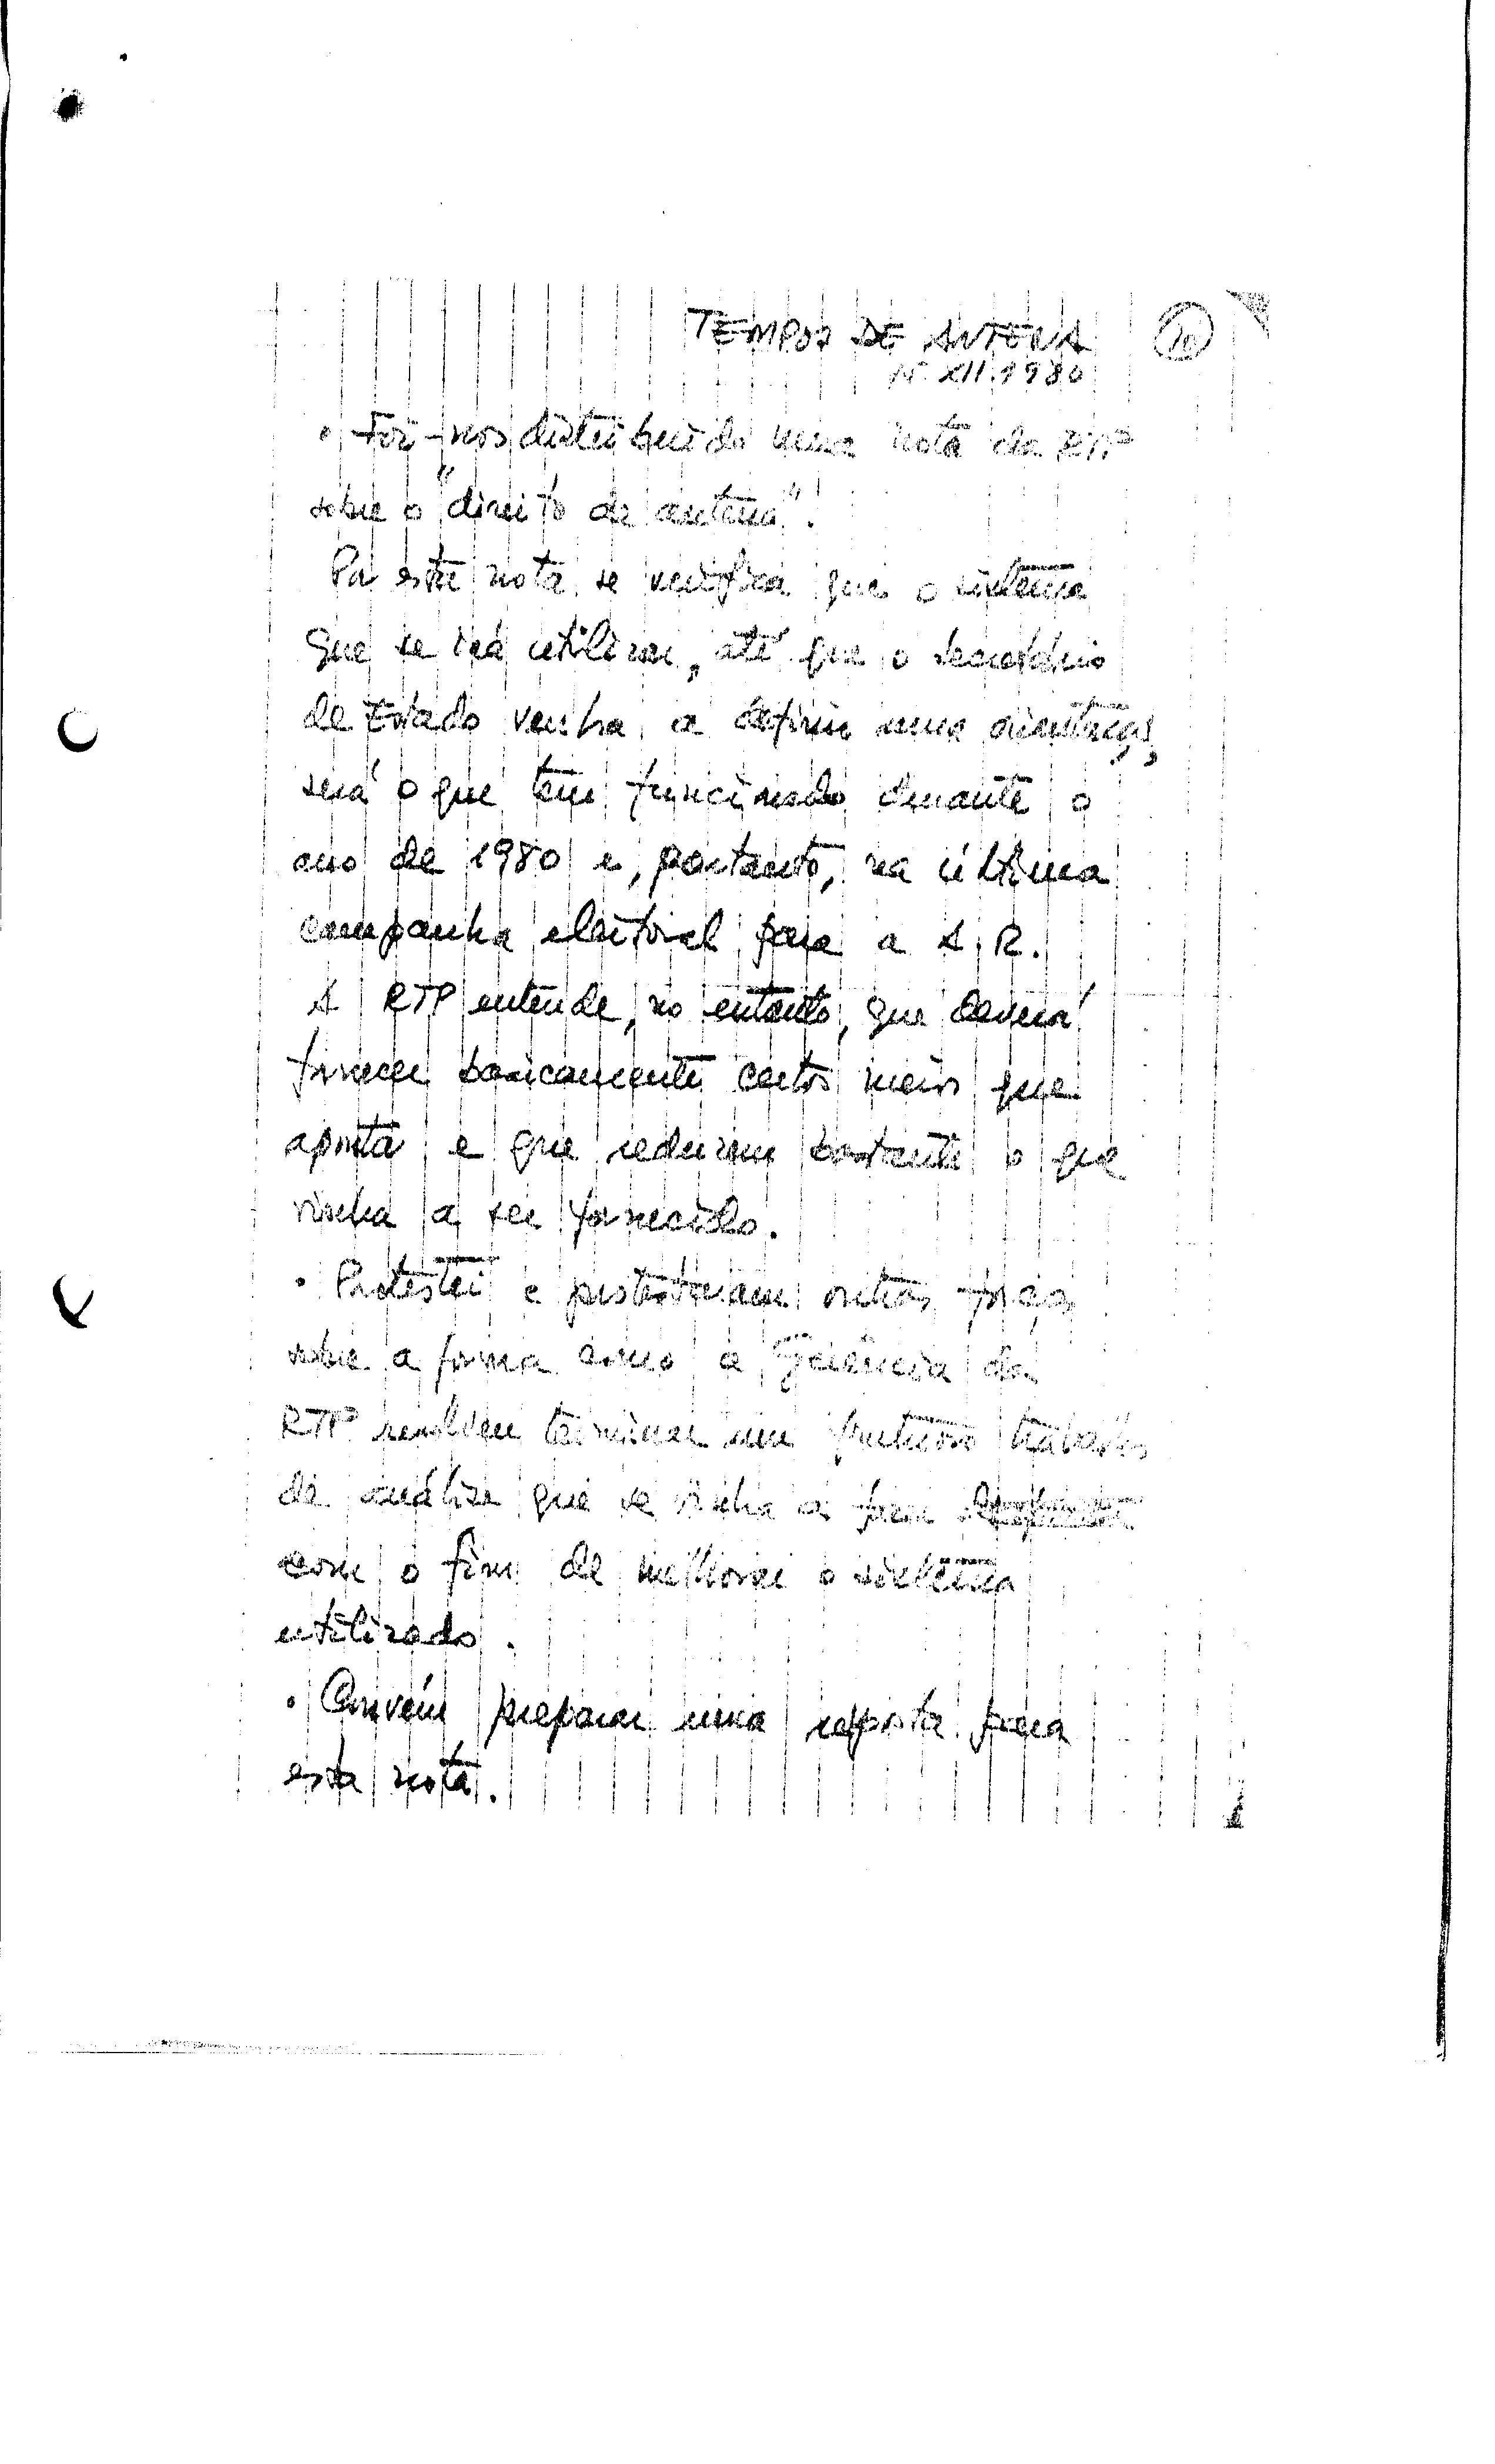 TEMPOS DE ANTENA 10
XII.1980
• Foi-nos distribuído uma nota da RTP
sobre o "direito de antena".
Por esta nota se verifica que o sistema
que se irá utilizar, até que o Secretário
de Estado venha a definir uma orientação,
será o que tem funcionado durante o
ano de 1980 e, portanto, na última
campanha eleitoral para a A.R.
A RTP entende, no entanto, que deverá
fornecer basicamente certos meios que
aponta e que reduzem bastante o que
vinha a ser fornecido.
• Protestei e protestaram outras forças
sobre a forma como a Gerência da
RTP resolveu terminar um frutuoso trabalho
de análise que se vinha a fazer
com o fim de melhorar o sistema
utilizado.
• Convém preparar uma resposta para
esta nota.